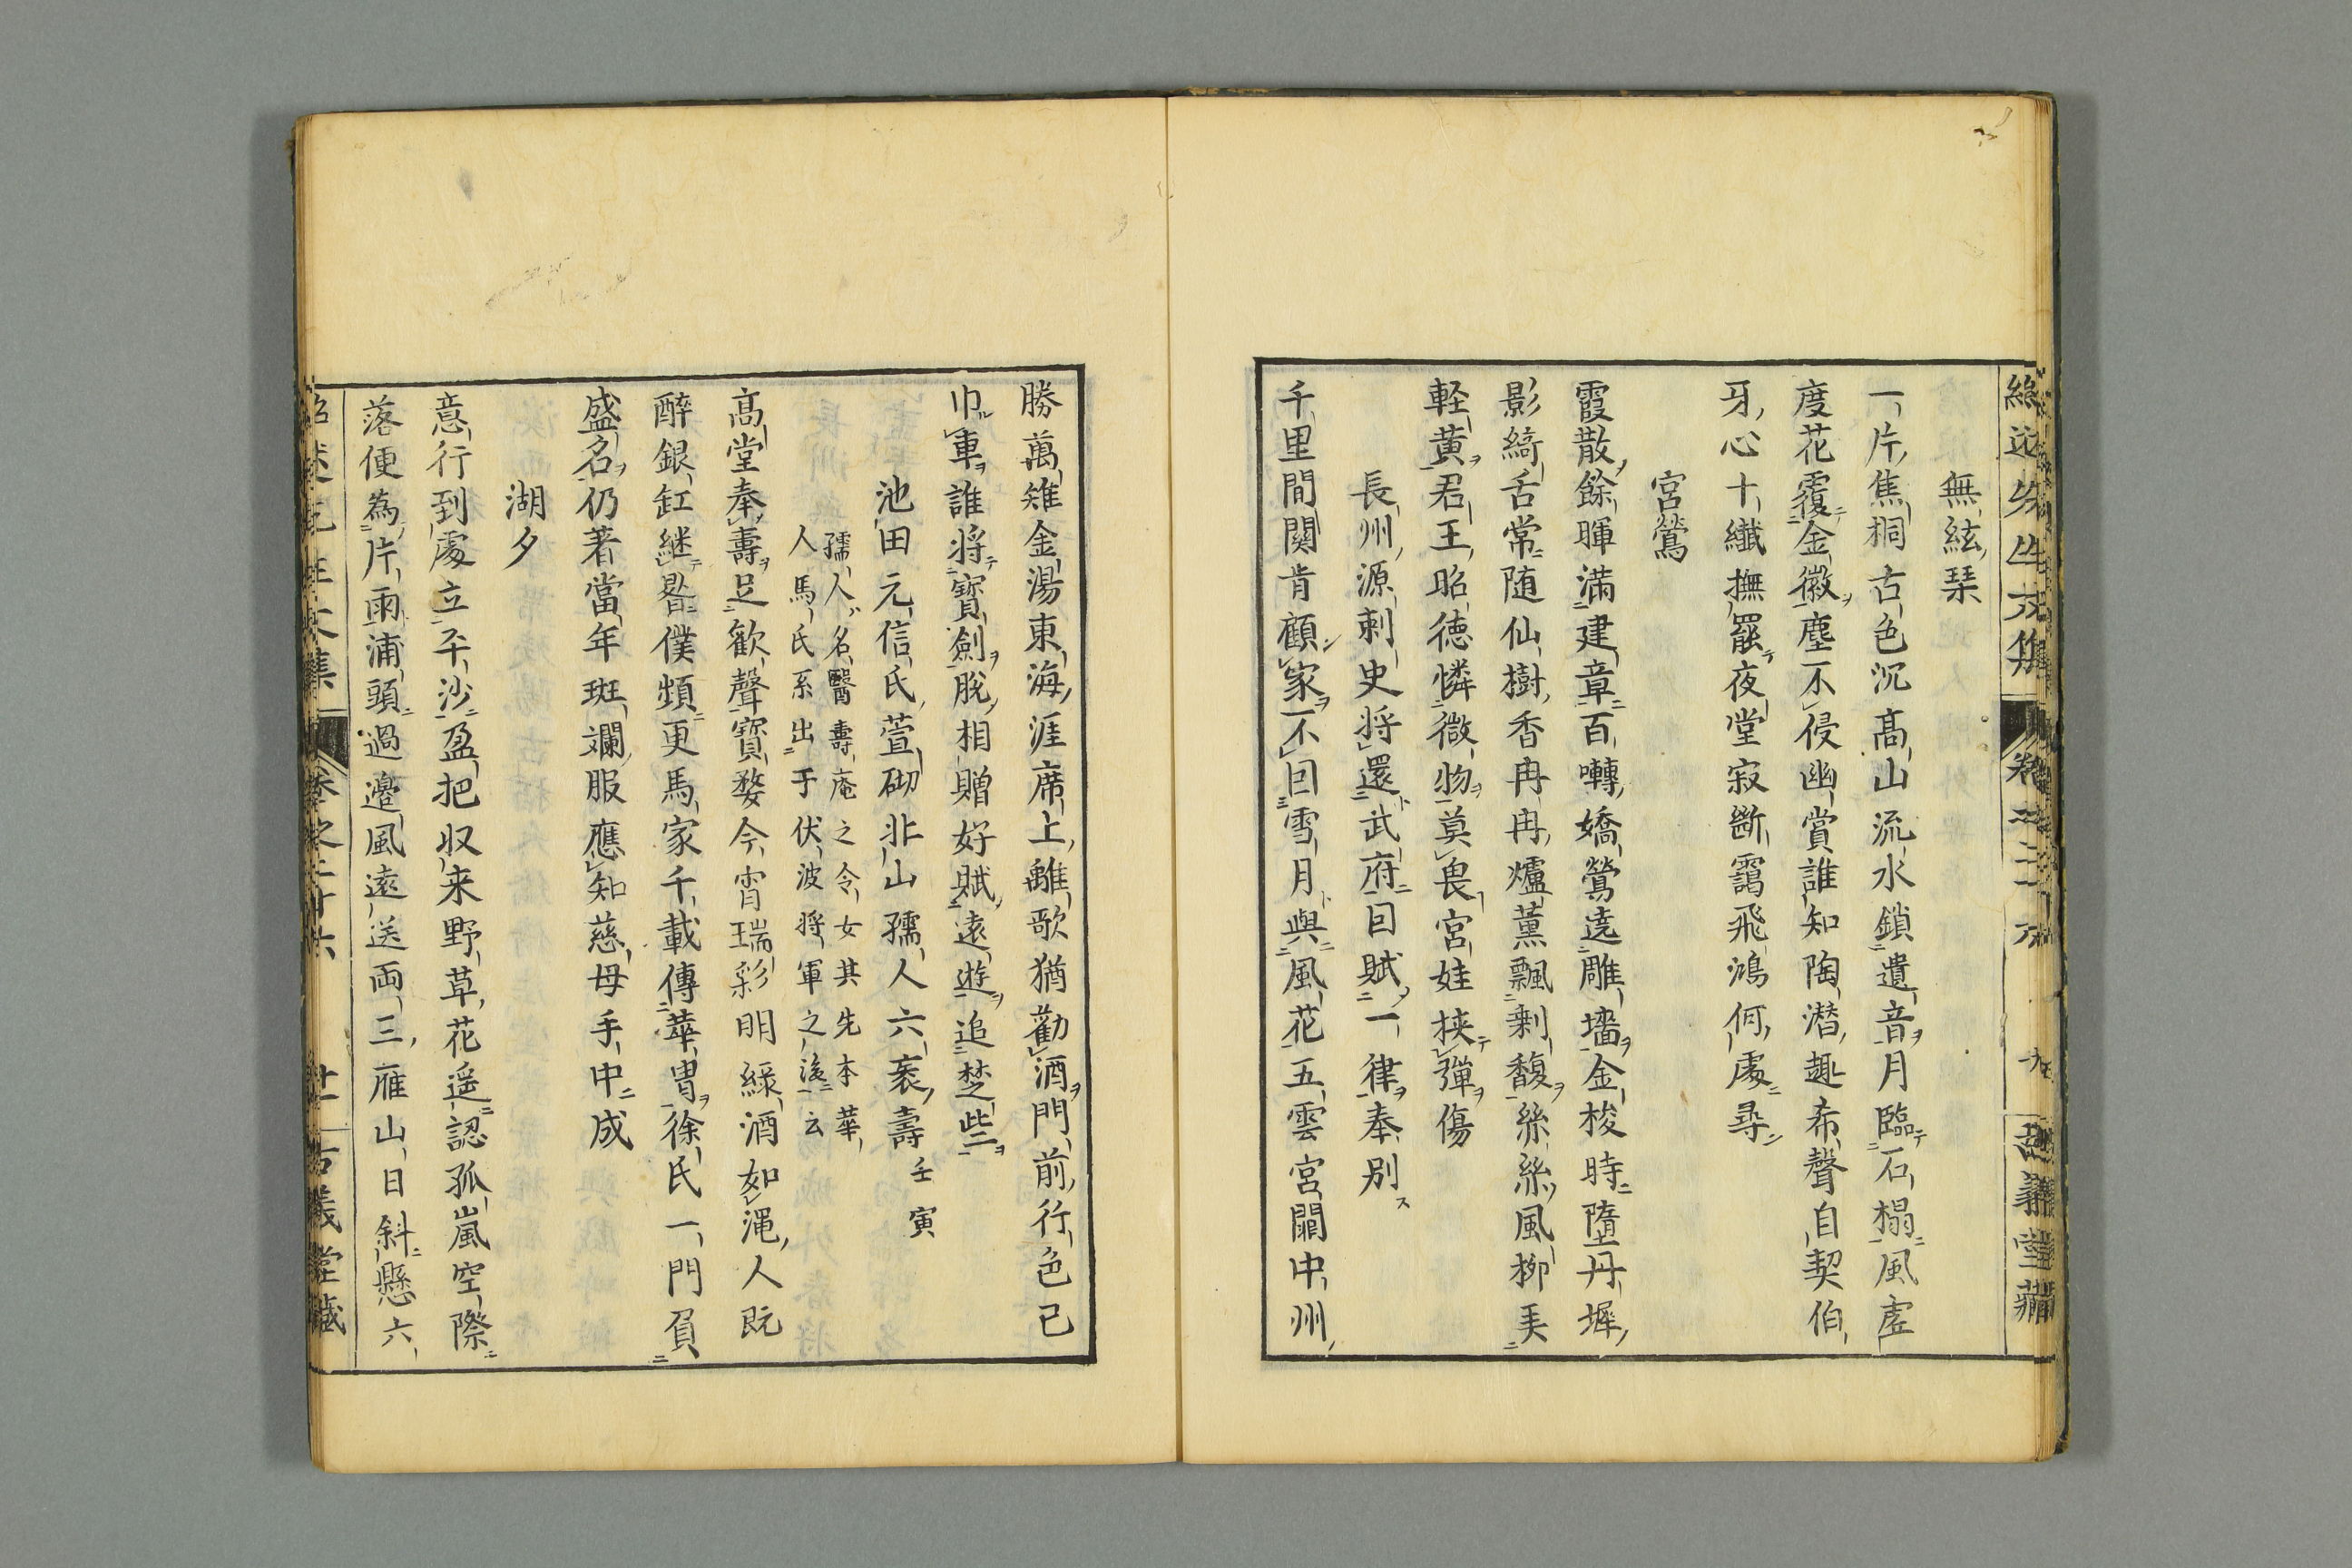 無絃琹
一片焦桐古色沉髙山流水鎖遺音月臨石榻風虗
度花覆金徽塵不侵幽賞誰知陶潜趣希聲自契伯
牙心十纎撫罷夜堂寂斷靄飛鴻何處尋
宮鶯
霞散餘暉滿建章百囀嬌鶯遶雕墻金梭時墮丹墀
影綺舌常随仙樹香冉冉爐薫飄剰馥絲絲風栁美
軽黄君王昭徳憐微物莫畏宮娃挟彈傷
長州源刺史將還武府因賦一律奉別
千里間關肯顧家不因雪月與風花五雲宮闕中州
勝萬雉金湯東海涯席上離歌猶勸酒門前行色已
巾車誰将寳劍脫相贈好賦遠遊追楚些
池田元信氏萱砌北山孺人六袠壽 壬寅
孺人名醫壽庵之令女其先本華
人馬氏系出于伏波将軍之後云
髙堂奉壽足歡聲寳婺今宵瑞彩明緑酒如澠人既
醉銀缸継晷僕頻更馬家千載傳華胄徐氏一門負
盛名仍著當年斑斕服應知慈母手中成
湖夕
意行到處立平沙盈把収来野草花遥認孤嵐空際
落便為片雨浦頭過邉風遠送両三雁山日斜懸六
紹述先生文集 卷之二十六 十一 古義堂藏